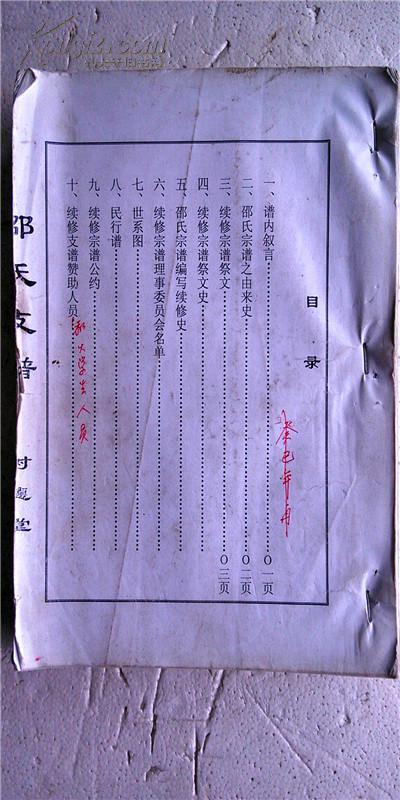 目录
一、谱内叙言……………………〇一页
二、邵氏宗谱之由来史……………………〇二页
三、续修宗谱祭文……………………〇三页
四、续修宗谱祭文史……………………
五、邵氏宗谱编写续修史……………………
六、续修宗谱理事委员会名单……………………
七、世系图……………………
八、民行谱……………………
九、续修宗谱公约……………………
十、续修支谱赞助人员……………………
和大学生人员
癸巳年
邵氏支谱
堂